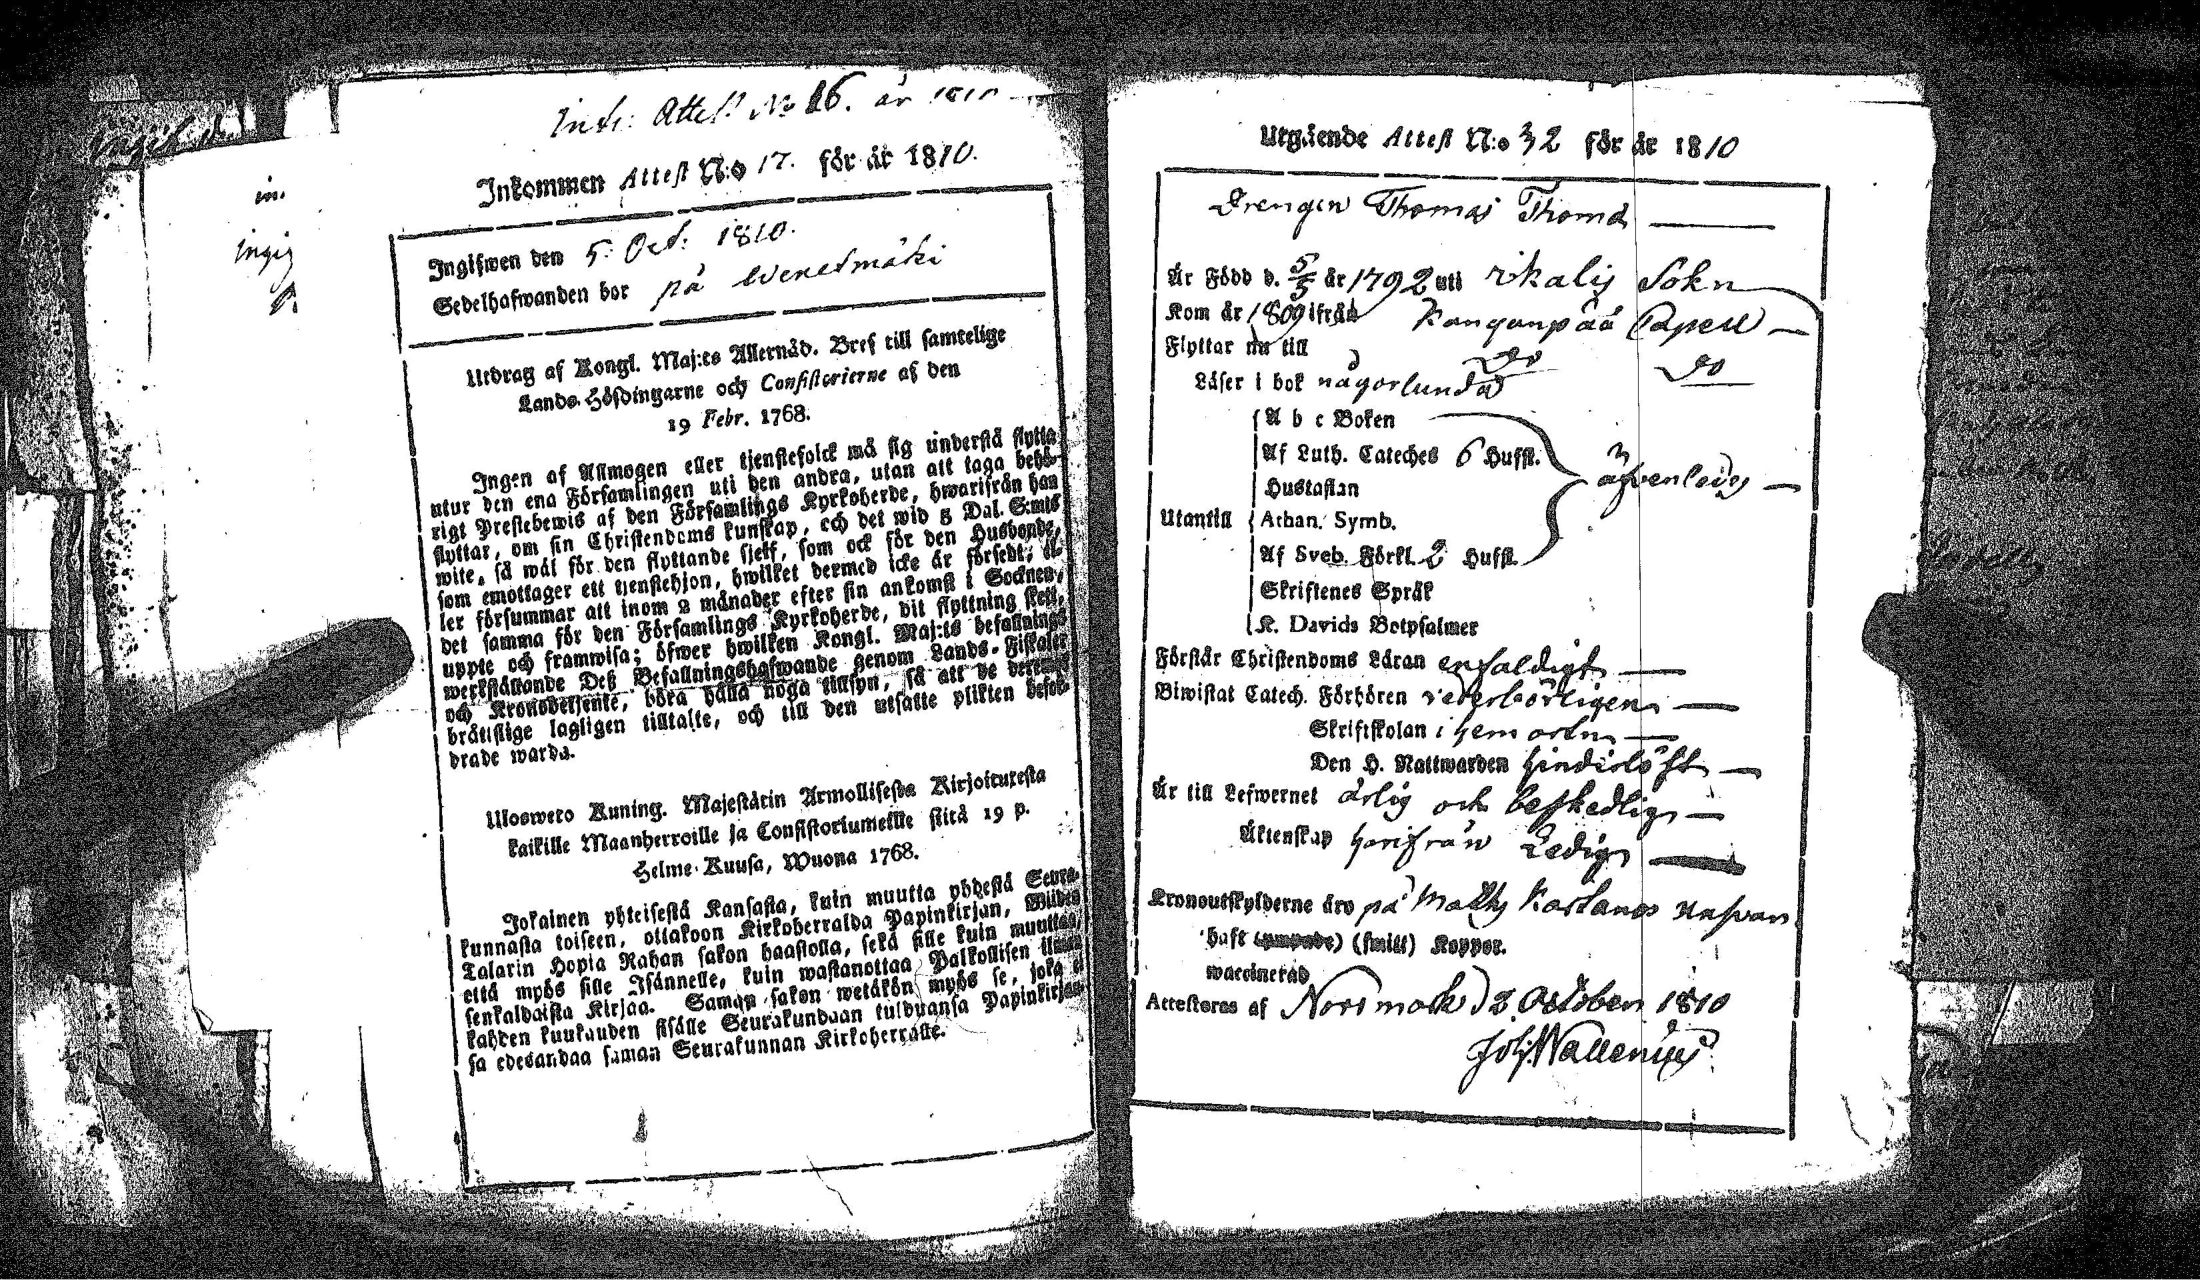 Inkom: Attest No 16. år 1810
Inkommen Attest N:o 17. för år 1810.
Ingifwen den 5: Oct: 1810.
Sedelhafwanden bor på Wenesmäki
Utdrag af Kongl. Maj:ts Allernåd. Bref till samtelige
Lands-Höfdingarne och Consistorierne af den
19 Febr. 1768.
Ingen af Allmogen eller tjenstefolck må sig understå flytta
utur den ena Församlingen uti den andra, utan att taga behö-
rigt Prestebewis af den Församlings Kyrkoherde, hwarifrån han
flyttar, om sin Christendoms kunskap, och det wid 5 Dal. S:mts
wite, så wäl för den flyttande sjelf, som ock för den Husbonde,
som emottager ett tjenstehjon, hwilket dermed icke är försedt; el-
ler försummar att inom 2 månader efter sin ankomst i Socknen,
det samma för den Församlings Kyrkoherde, dit flyttning skett,
uppte och framwisa; öfwer hwilken Kongl. Maj:ts befallnings
werkställande Deß Befallningshafwande genom Lands-Fiskaler
och Kronobetjente, böra hålla noga tillsyn, så att de deremot
bråttslige lagligen tilltalte, och till den utsatte plikten befor-
drade warda.
Ulosweto Kuning. Majestätin Armollisesta Kirjoituxesta
kaikille Maanherroille ja Consistoriumeille siitä 19 p.
Helme-Kuusa, Wuona 1768.
Jokainen yhteisestä Kansasta, kuin muutta yhdestä Seura-
kunnasta toiseen, ottakoon Kirkoherralda Papinkirjan, Wiiden
Talarin Hopia Rahan sakon haastolla, sekä sille kuin muuttaa,
että myös sille Isännelle, kuin wastanottaa Palkollisen ilman
senkaldaista Kirjaa. Saman sakon wetäkön myös se, joka ei
kahden kuukauden sisälle Seurakundaan tulduansa Papinkirjan-
sa edesandaa saman Seurakunnan Kirkoherralle.
in.
ingig
Utgående Attest N:o 32 för år 1810
Drengen Thomas Thomæ
Är Född d. 5/5 år 1792 uti Ikalis Sokn
Kom år 1809 ifrån Kanganpää Capell
Flyttar nu till Do Do
Läser i bok någorlunda
A b c Boken
Af Luth. Cateches 6 Hufst.
Hustaflan
äfvenledes
Utantill Athan. Symb.
Af Sveb. Förkl. 2 Hufst.
Skriftenes Språk
K. Davids Botpsalmer
Förstår Christendoms Läran enfaldigt
Biwistat Catech. Förhören vederbörligen
Skriftskolan i hemorten
Den H. Nattwarden hindislöst
Är till Lefwernet ärlig och beskedlig
Äktenskap härifrån Ledig
Kronoutskylderne äro på Matts Kartanos
haft (ympade) (smitt) Koppor.
waccinerad
Attesteras af Norrmark d 2 October 1810
Joh. Wallenius